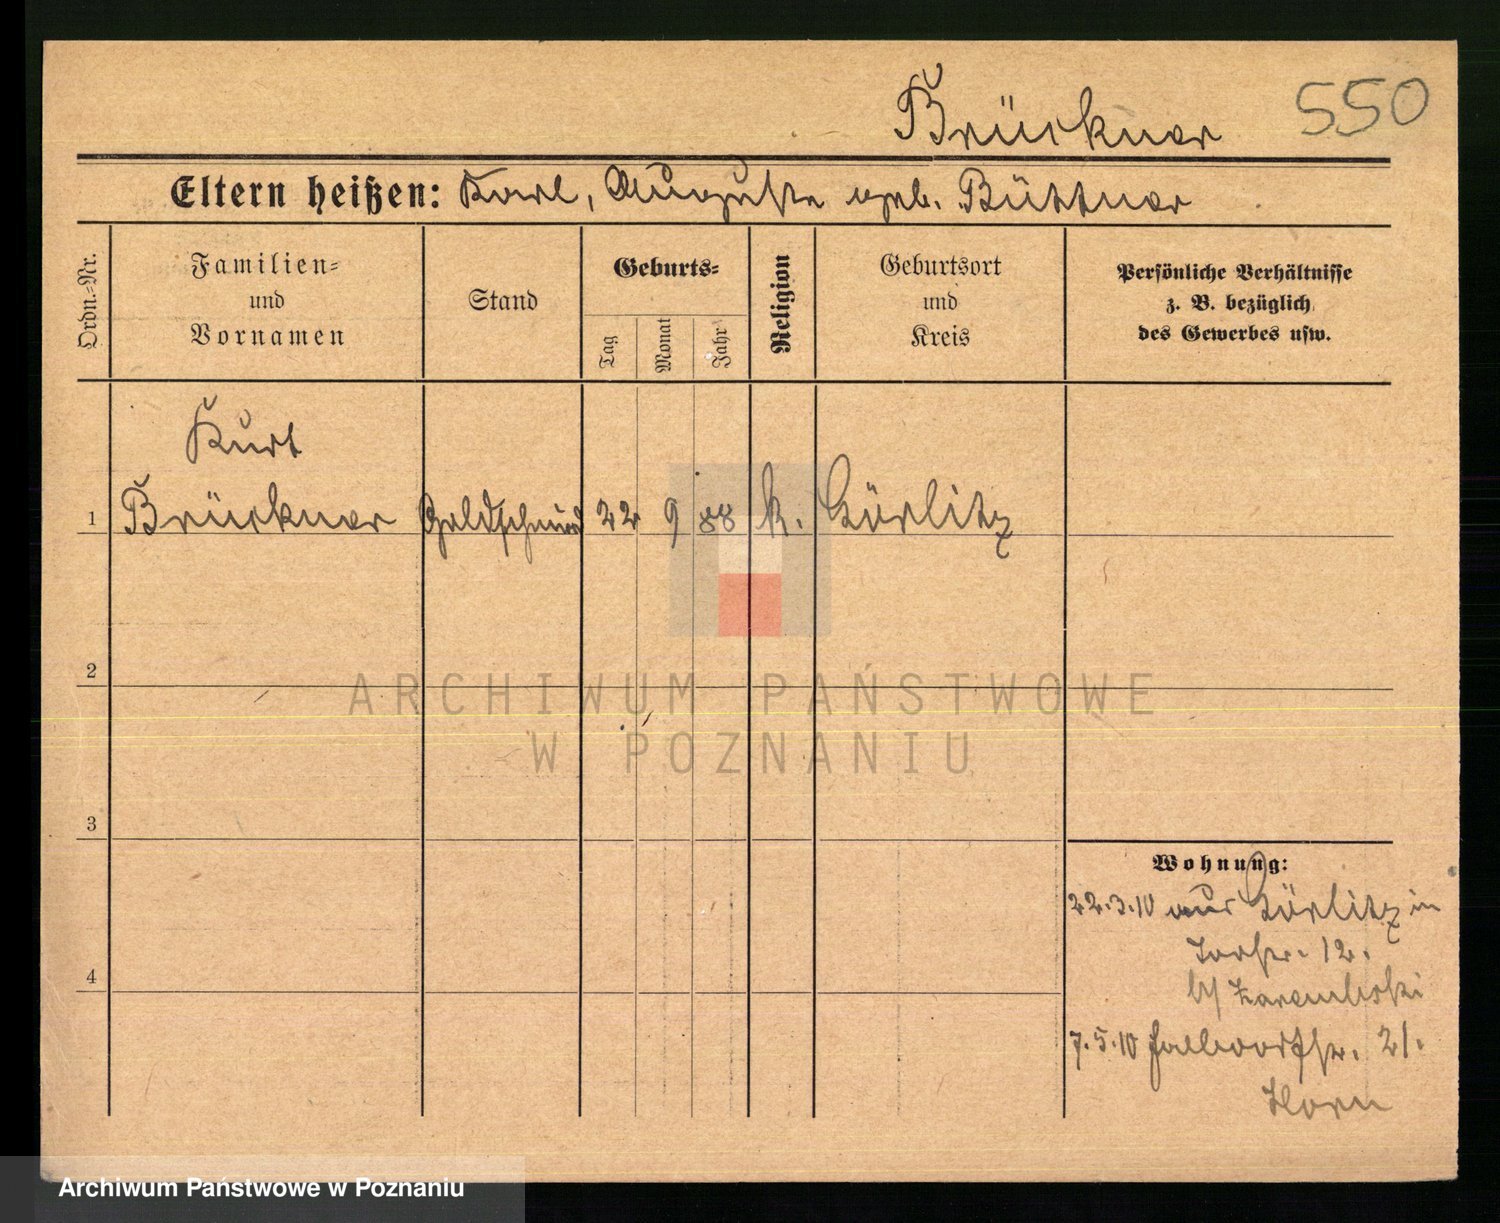 Brückner 550
Eltern heißen: Karl, Auguste geb. Büttner
Ordn.-Nr.
Familien-
und
Vornamen
Stand
Geburts-
Tag
Monat
Jahr
Religion
Geburtsort
und
Kreis
Persönliche Verhältnisse
z. B. bezüglich
des Gewerbes usw.
Kurt
1 Brückner Goldschmied 22 9 88 k. Görlitz
2
ARCHIWUM PAŃSTWOWE
W POZNANIU
3
Wohnung:
22.3.10 aus Görlitz in
Torstr. 12.
b/ Zaremboki
4
7.5.10 21.
Horn
Archiwum Państwowe w Poznaniu